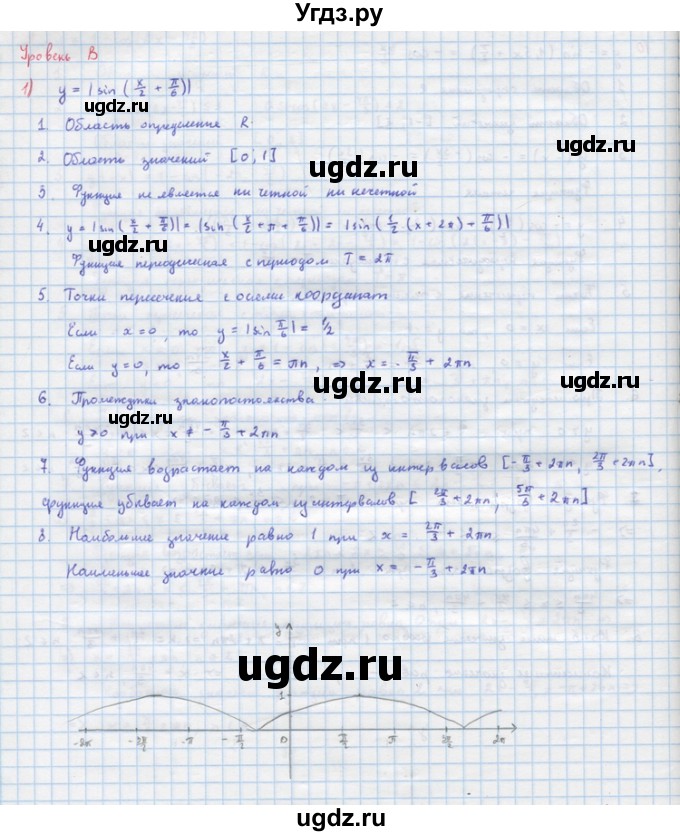 Угдз.ру
Уровень В
1) y = |sin (x/2 + π/6)|
ugdz.ru ugdz.ru
1. Область определения R.
2. Область значений [0; 1]
ugdz.ru ugdz.ru
3. Функция не является ни четной ни нечетной
4. y = |sin(x/2 + π/6)| = |sin (x/2 + π + π/6)| = |sin (1/2 (x + 2π) + π/6)|
ugdz.ru
Функция периодическая с периодом T = 2π
5. Точки пересечения с осями координат
ugdz.ru ugdz.ru
Если x = 0, то y = |sin π/6| = 1/2
Если y = 0, то x/2 + π/6 = πn, ⇒ x = -π/3 + 2πn
ugdz.ru
6. Промежутки знакопостоянства
y > 0 при x ≠ -π/3 + 2πn
ugdz.ru ugdz.ru
7. Функция возрастает на каждом из интервалов [-π/3 + 2πn, 2π/3 + 2πn],
функция убывает на каждом из интервалов [2π/3 + 2πn; 5π/3 + 2πn]
ugdz.ru
8. Наибольшее значение равно 1 при x = 2π/3 + 2πn
ugdz.ru ugdz.ru
Наименьшее значение равно 0 при x = -π/3 + 2πn
y
ugdz.ru
1
-2π -3π/2 -π -π/2 0 π/2 π 3π/2 2π
ugdz.ru ugdz.ru
ugdz.ru